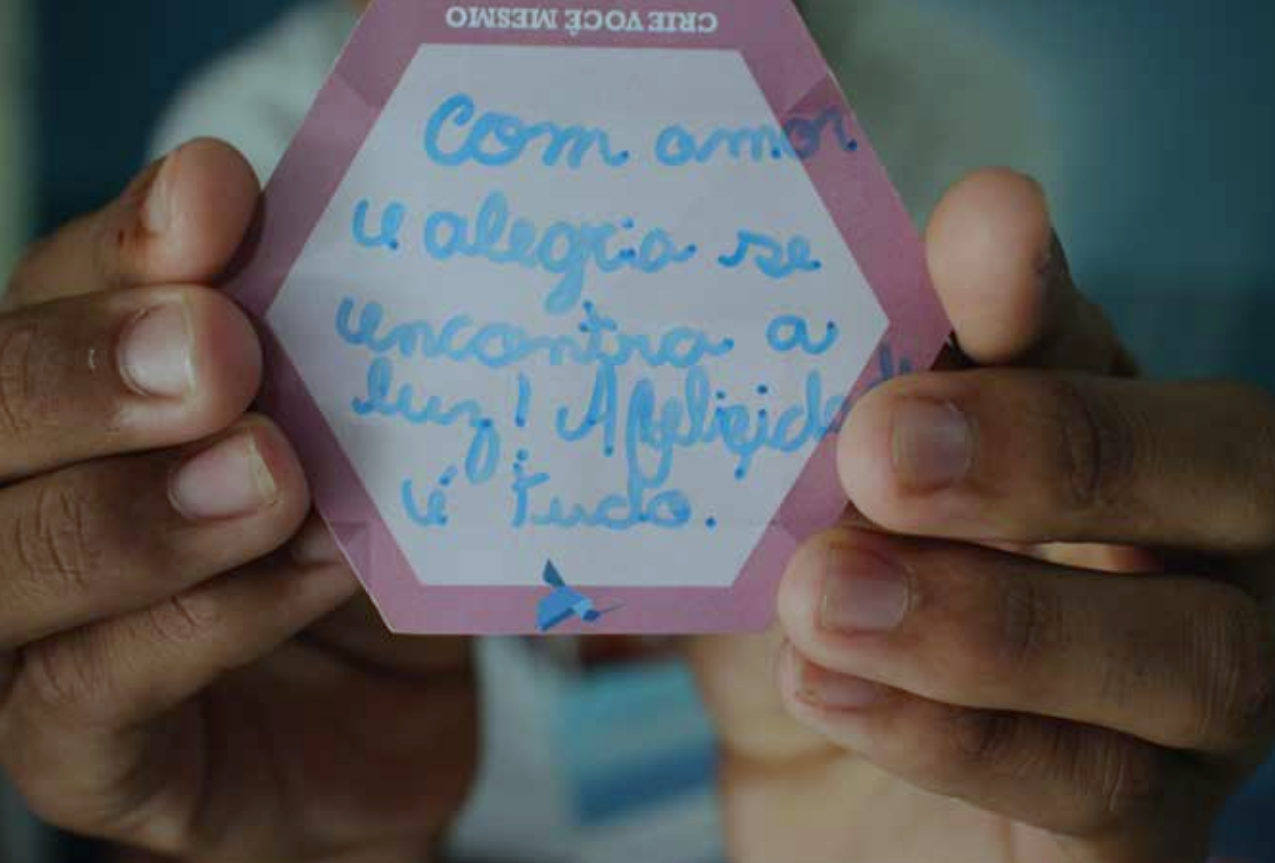 CRIE VOCÊ MESMO
Com amor
e alegria se
encontra a
luz! A
é tudo.